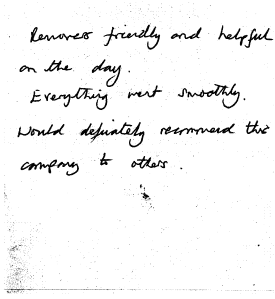 Removers friendly and helpful
on the day.
Everything went smoothly.
Would definately recommend this
company to others.